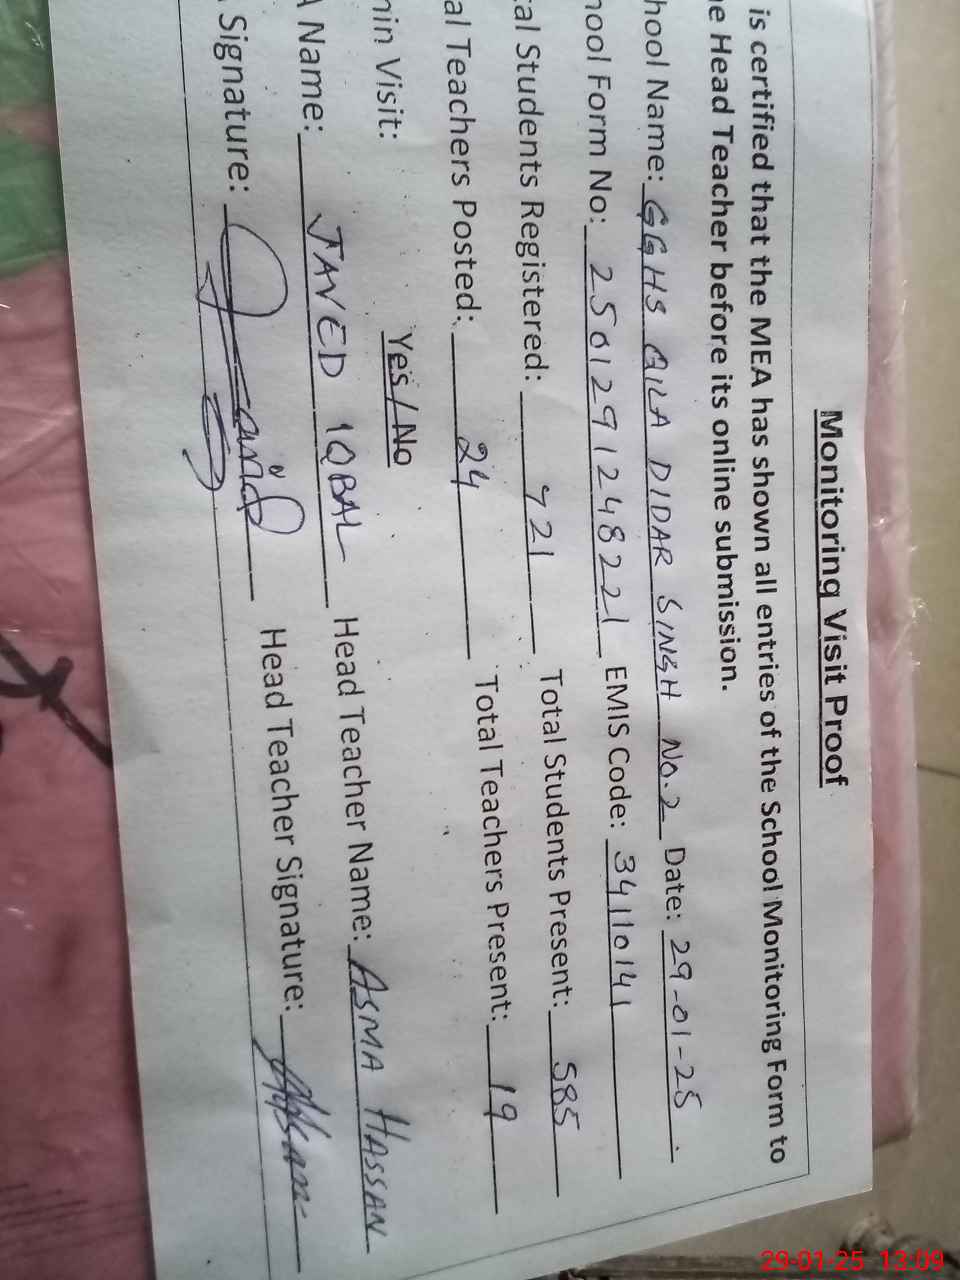 Monitoring Visit Proof
is certified that the MEA has shown all entries of the School Monitoring Form to
e Head Teacher before its online submission.
hool Name: GGHS QILA DIDAR SINGH No.2 Date: 29-01-25
hool Form No: 2501291248221 EMIS Code: 34110141
al Students Registered: 721 Total Students Present: 585
al Teachers Posted: 24 Total Teachers Present: 19
min Visit: Yes/No
A Name: JAVED IQBAL Head Teacher Name: ASMA HASSAN
Signature: Head Teacher Signature:
29-01-25 13:09